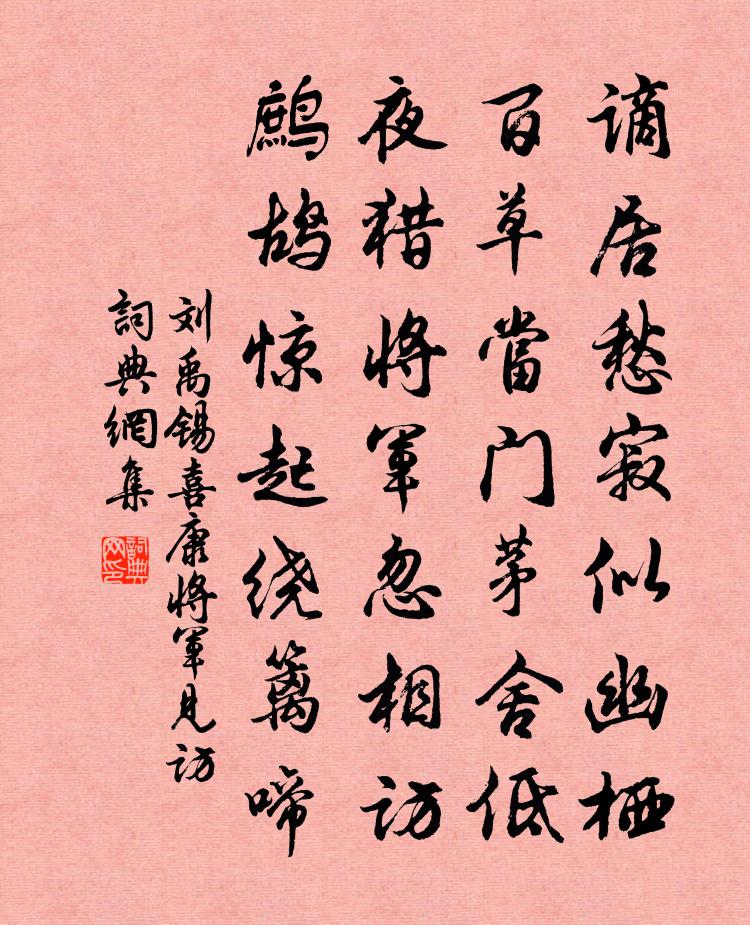 谪居愁寂似幽栖
百草當门茅舍低
夜猎将军忽相访
鹧鸪惊起绕篱啼
刘禹锡喜康将军见访
詞典網集
詞典網印